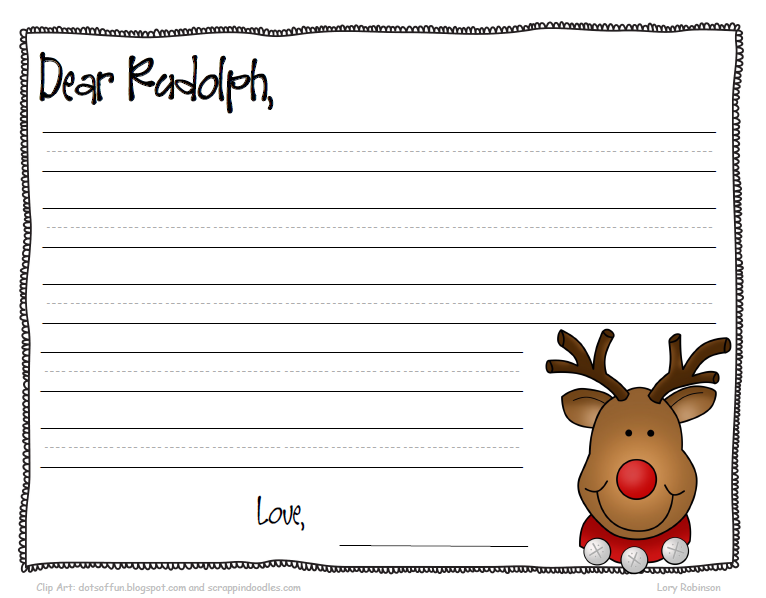 Dear Rudolph,
Love,
Clip Art: dotsoffun.blogspot.com and scrappindoodles.com
Lory Robinson